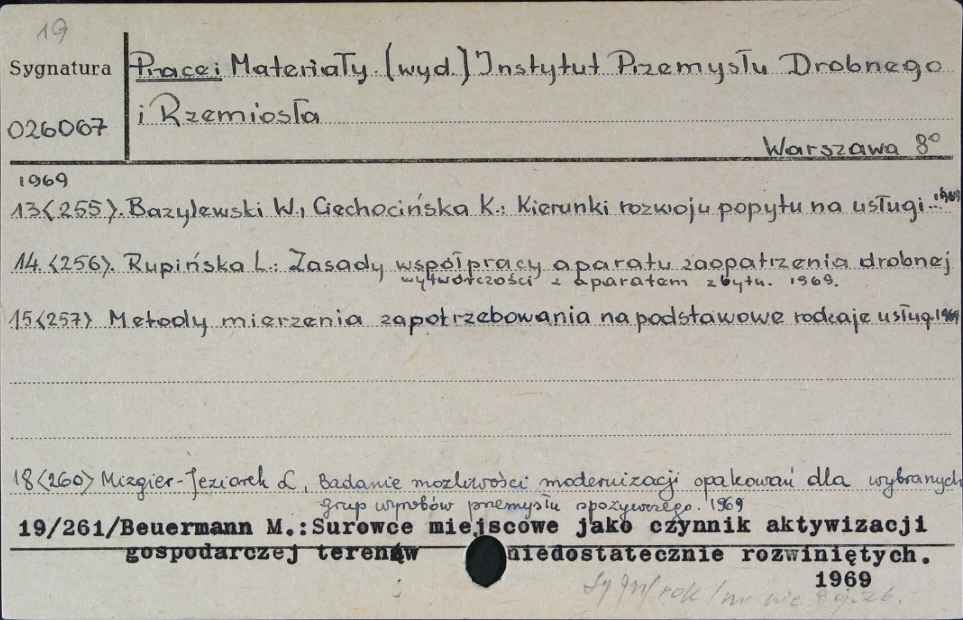 19
Sygnatura
Prace i Materiały. (wyd.) Instytut Przemysłu Drobnego
i Rzemiosła
026067
Warszawa 8°
1969
13<255>. Bazylewski W., Ciechocińska K.: Kierunki rozwoju popytu na usługi. 1969
14.<256>. Rupińska L.: Zasady współpracy aparatu zaopatrzenia drobnej
wytwórczości z aparatem zbytu. 1969.
15<257> Metody mierzenia zapotrzebowania na podstawowe rodzaje usług. 1969
18<260> Mizgier-Jeziorek L, Badanie możliwości modernizacji opakowań dla wybranych
grup wyrobów przemysłu spożywczego. 1969
19/261/Beuermann M.:Surowce miejscowe jako czynnik aktywizacji
gospodarczej terenów niedostatecznie rozwiniętych.
1969
Sygn/rok/nr nie